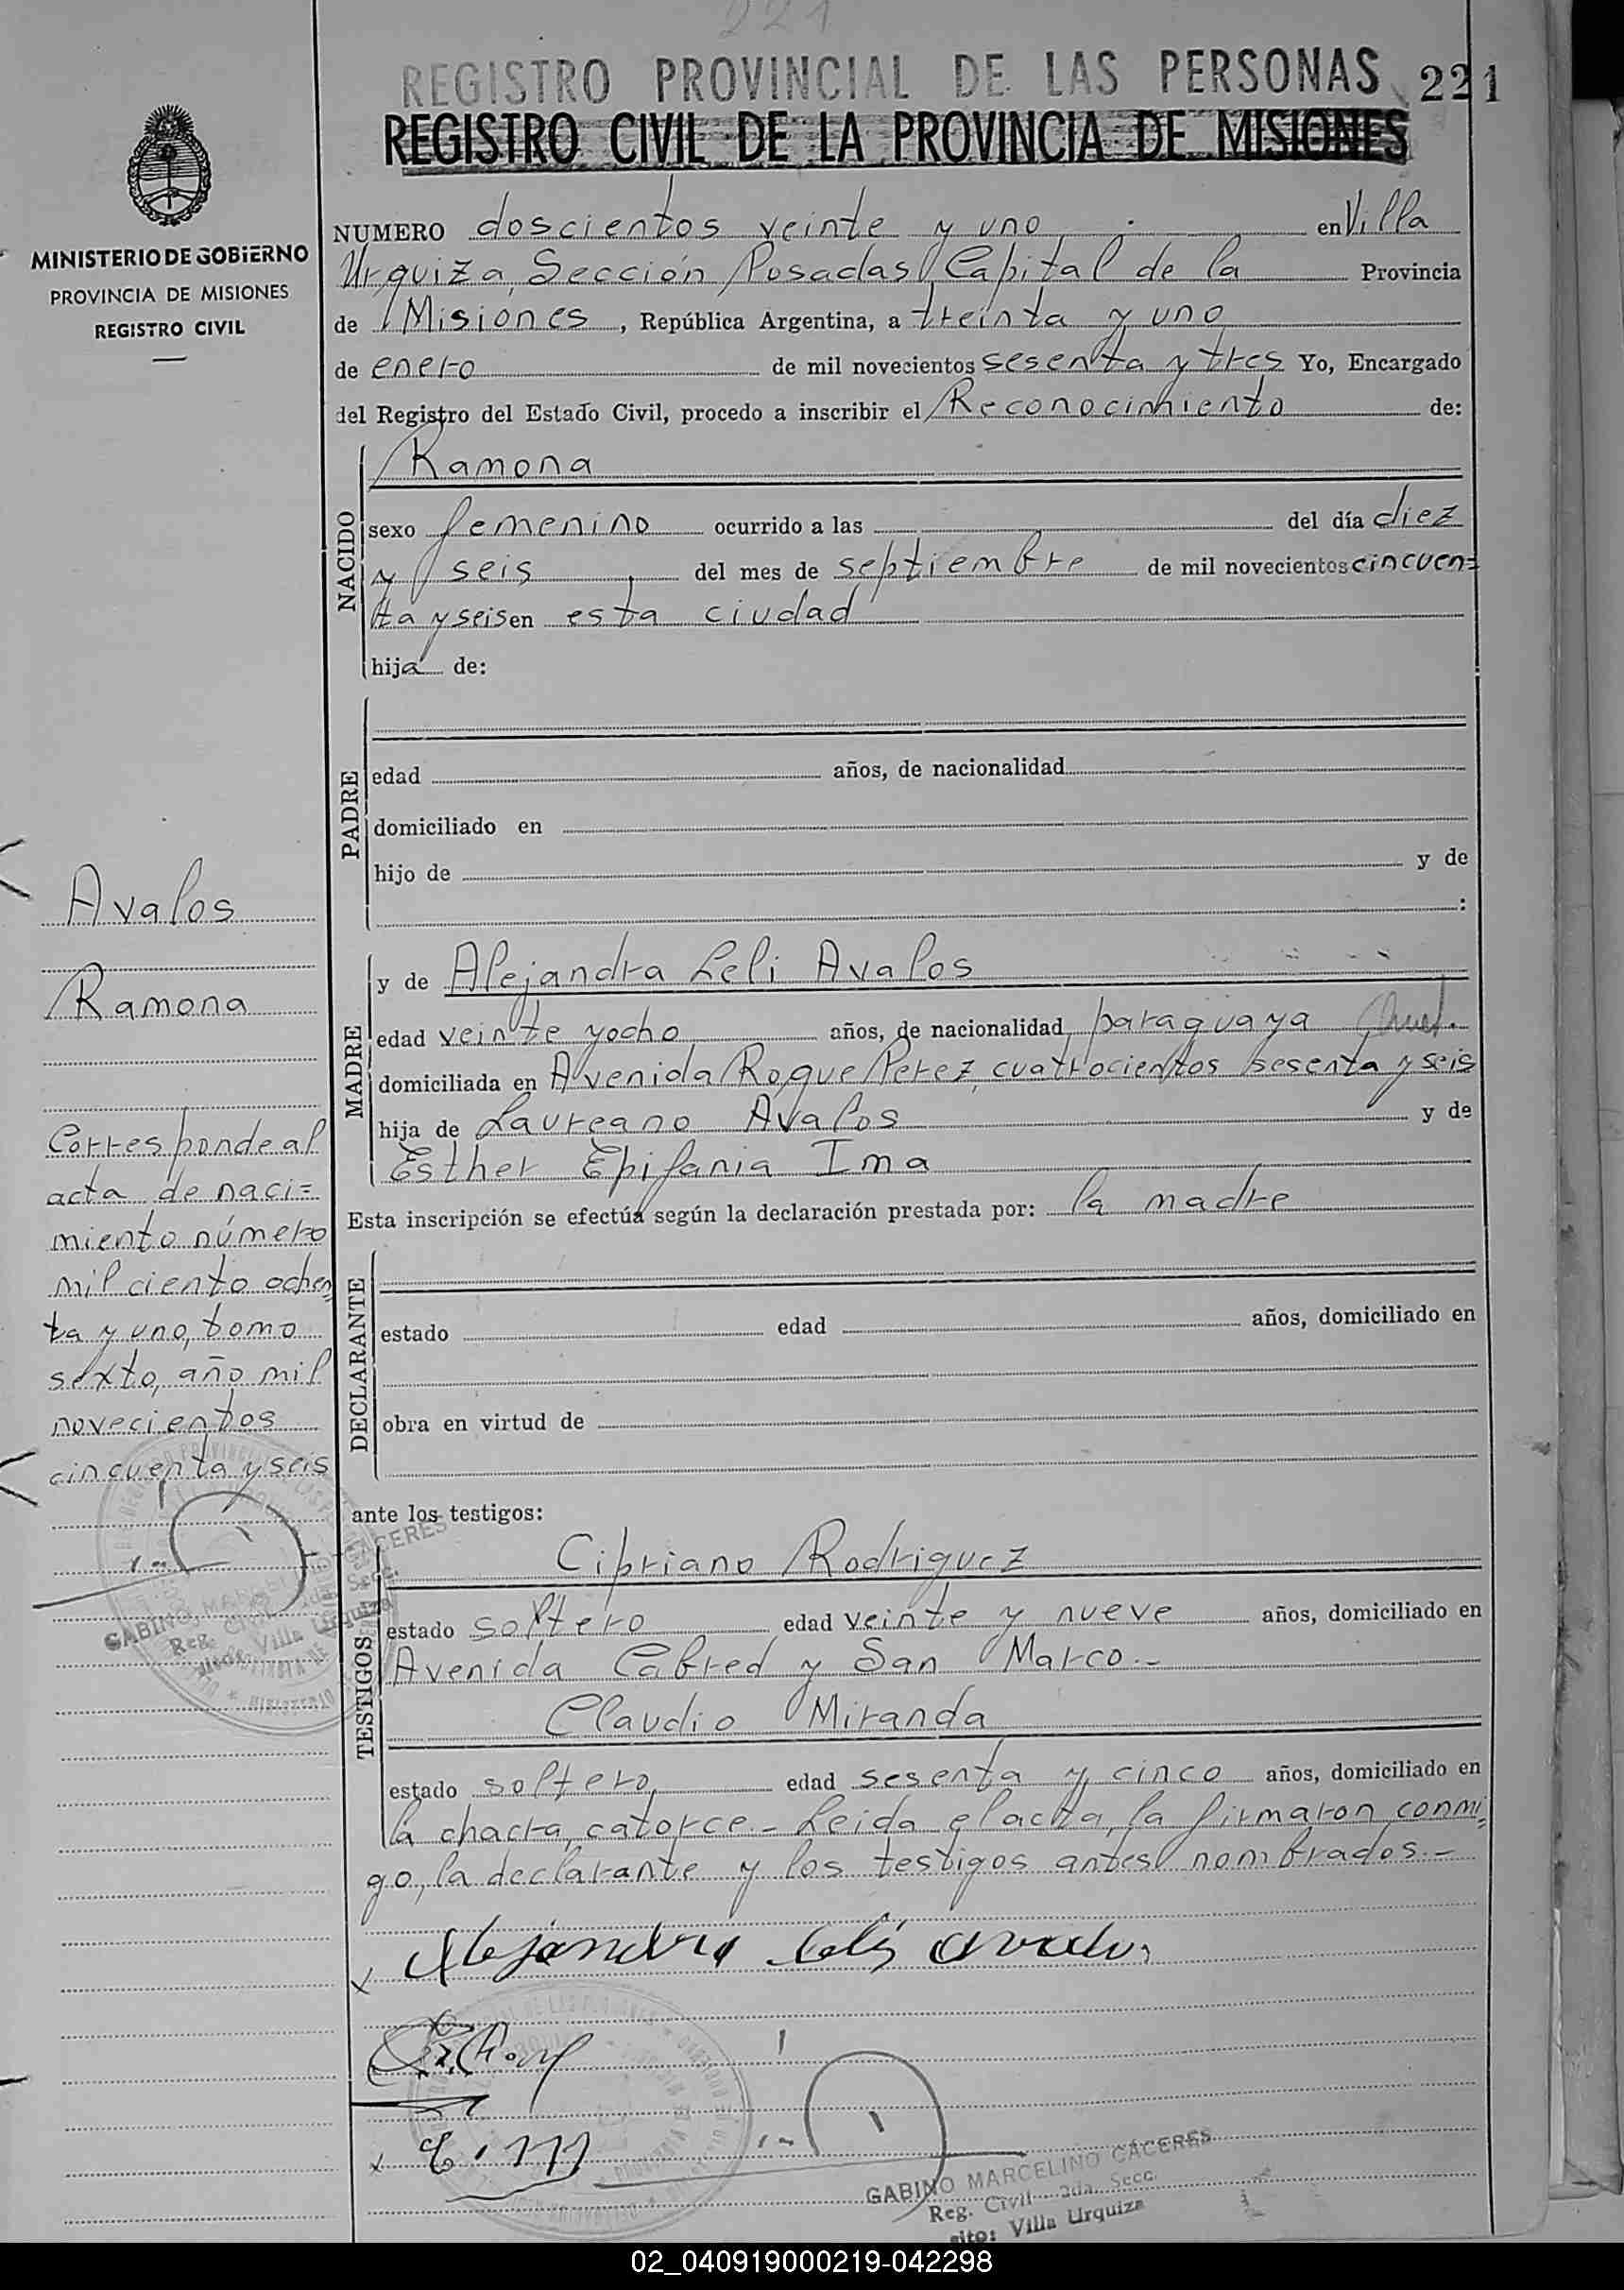 221
REGISTRO PROVINCIAL DE LAS PERSONAS 221
REGISTRO CIVIL DE LA PROVINCIA DE MISIONES
MINISTERIO DE GOBIERNO
PROVINCIA DE MISIONES
REGISTRO CIVIL
NUMERO doscientos veinte y uno en Villa
Urquiza, Sección Posadas Capital de la Provincia
de Misiones, República Argentina, a treinta y uno
de enero de mil novecientos sesenta y tres Yo, Encargado
del Registro del Estado Civil, procedo a inscribir el Reconocimiento de:
NACIDO
Ramona
sexo femenino ocurrido a las del día diez
y seis del mes de septiembre de mil novecientos cincuen=
ta y seis en esta ciudad
hija de:
PADRE
edad años, de nacionalidad
domiciliado en
hijo de y de
:
MADRE
y de Alejandra Leli Avalos
edad veinte y ocho años, de nacionalidad paraguaya
domiciliada en Avenida Roque Perez, cuatrocientos sesenta y seis
hija de Laureano Avalos y de
Esther Epifania Ima
Esta inscripción se efectúa según la declaración prestada por: la madre
DECLARANTE
estado edad años, domiciliado en
obra en virtud de
ante los testigos:
TESTIGOS
Cipriano Rodriguez
estado soltero edad veinte y nueve años, domiciliado en
Avenida Cabred y San Marco.-
Claudio Miranda
estado soltero, edad sesenta y cinco años, domiciliado en
la chacra, catorce.- Leida el acta, la firmaron conmi=
go, la declarante y los testigos antes nombrados.-
Avalos
Ramona
Corresponde al
acta de naci=
miento número
mil ciento ochen
ta y uno, tomo
sexto, año mil
novecientos
cincuenta y seis
GABINO MARCELINO CACERES
Reg. Civil 2da. Secc.
Villa Urquiza
x Alejandra Leli Avalos
x C. M
GABINO MARCELINO CÁCERES
Reg. Civil 2da. Secc.
sito: Villa Urquiza
02_040919000219-042298